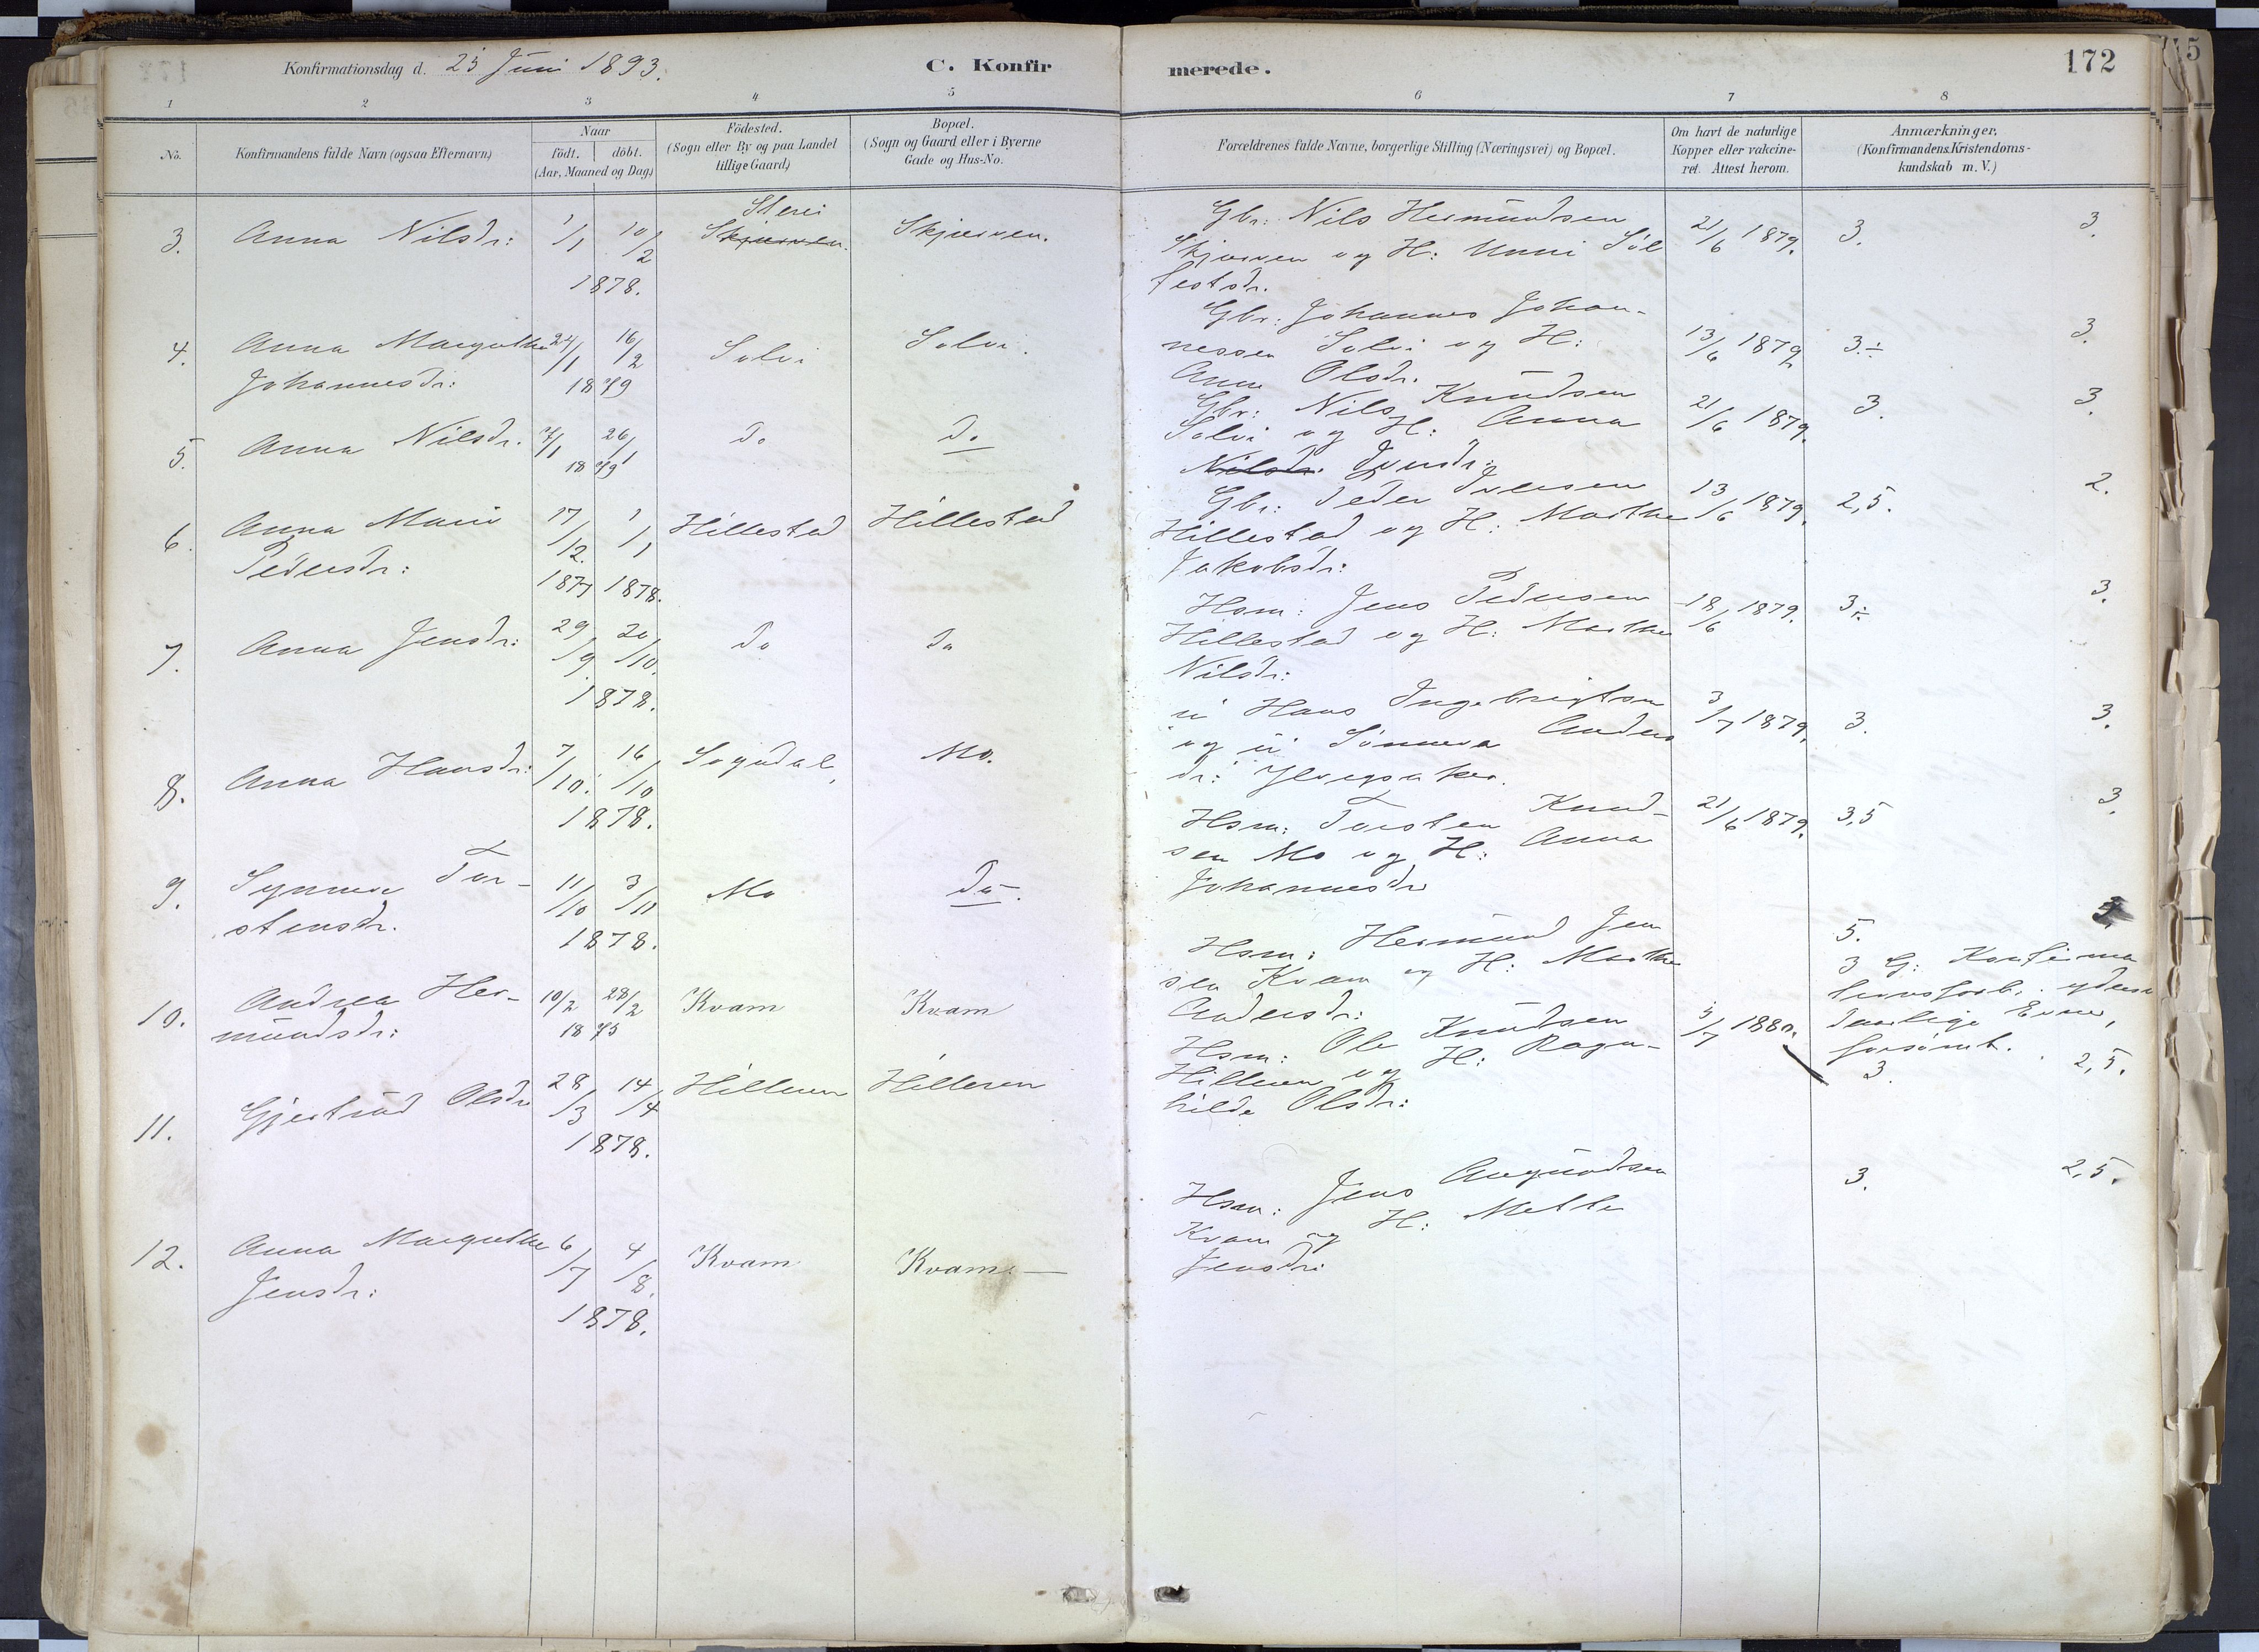 Konfirmationsdag d. 25 Juni 1893.
C. Konfir
merede.
172
1 2 3 4 5 6 7 8
No.
Konfirmandens fulde Navn (ogsaa Efternavn)
Naar
födt. döbt.
(Aar, Maaned og Dag)
Födested.
(Sogn eller By og paa Landet
tillige Gaard)
Bopæl.
(Sogn og Gaard eller i Byerne
Gade og Hus-No.
Forældrenes fulde Navne, borgerlige Stilling (Næringsvei) og Bopæl.
Om havt de naturlige
Kopper eller vakcine-
ret. Attest herom.
Anmærkninger.
(Konfirmandens Kristendoms-
kundskab m. V.)
3. Anna Nilsdr: 1/1 10/2 Skjerven. Skjerven.
1878.
Gbr: Nils Hermundsen 21/6 1879. 3. 3.
Skjerven og H: Unni Söl
festsdr.
4. Anna Margrethe 24/1 16/2 Solvi Solvi.
Johannesdr: 1879
Gbr: Johannes Johan-
nessen Solvi og H: 13/6 1879 3.÷ 3.
Anna Olsdr.
5. Anna Nilsdr. 7/1 26/1 do do
1879
Gbr: Nils Knudsen 21/6 1879. 3. 3.
Solvi og H: Anna
Nilsdr. Jensdr:
6. Anna Marie 17/12. 1/1 Hillestad Hillestad
Pedersdr: 1877 1878.
Gbr: Peder Iversen 13/6 1879. 2,5. 2.
Hillestad og H: Marthe
Jakobsdr:
7. Anna Jensdr: 29/9 20/10. do do
1878.
Hsm: Jens Pedersen 18/6 1879. 3÷ 3.
Hillestad og H: Marthe
Nilsdr:
8. Anna Hansdr: 7/10. 16/10 Sogndal, Mo.
1878.
ú Hans Ingebrigtsen 3/7 1879. 3. 3.
og ú Sönneva Anders
dr:
9. Synneve Tor- 11/10 3/11 Mo do.
stensdr. 1878.
Hsm: Torsten Knud- 21/6 1879. 3,5 3.
sen Mo og H: Anna
Johannesdr
10. Andrea Her- 10/2 28/2 Kvam Kvam
mundsdr: 1875
Hsm: Hermund Jen 5.
sen Kvam og H: Marthe 3 G: Konfirma
Andersdr: tionsforb. yderst
daarlige Evner,
forsömt.
11. Gjertrud Olsdr 28/3 14/4 Hilleren Hilleren
1878.
Hsm: Ole Knudsen 5/7 1880. 3. 2,5.
Hilleren og H: Ragn-
hilde Olsdr:
12. Anna Margrethe 6/7 4/8. Kvam Kvam.
Jensdr: 1878.
Hsm: Jens Augundsen 3. 2,5.
Kvam og H: Mette
Jensdr: